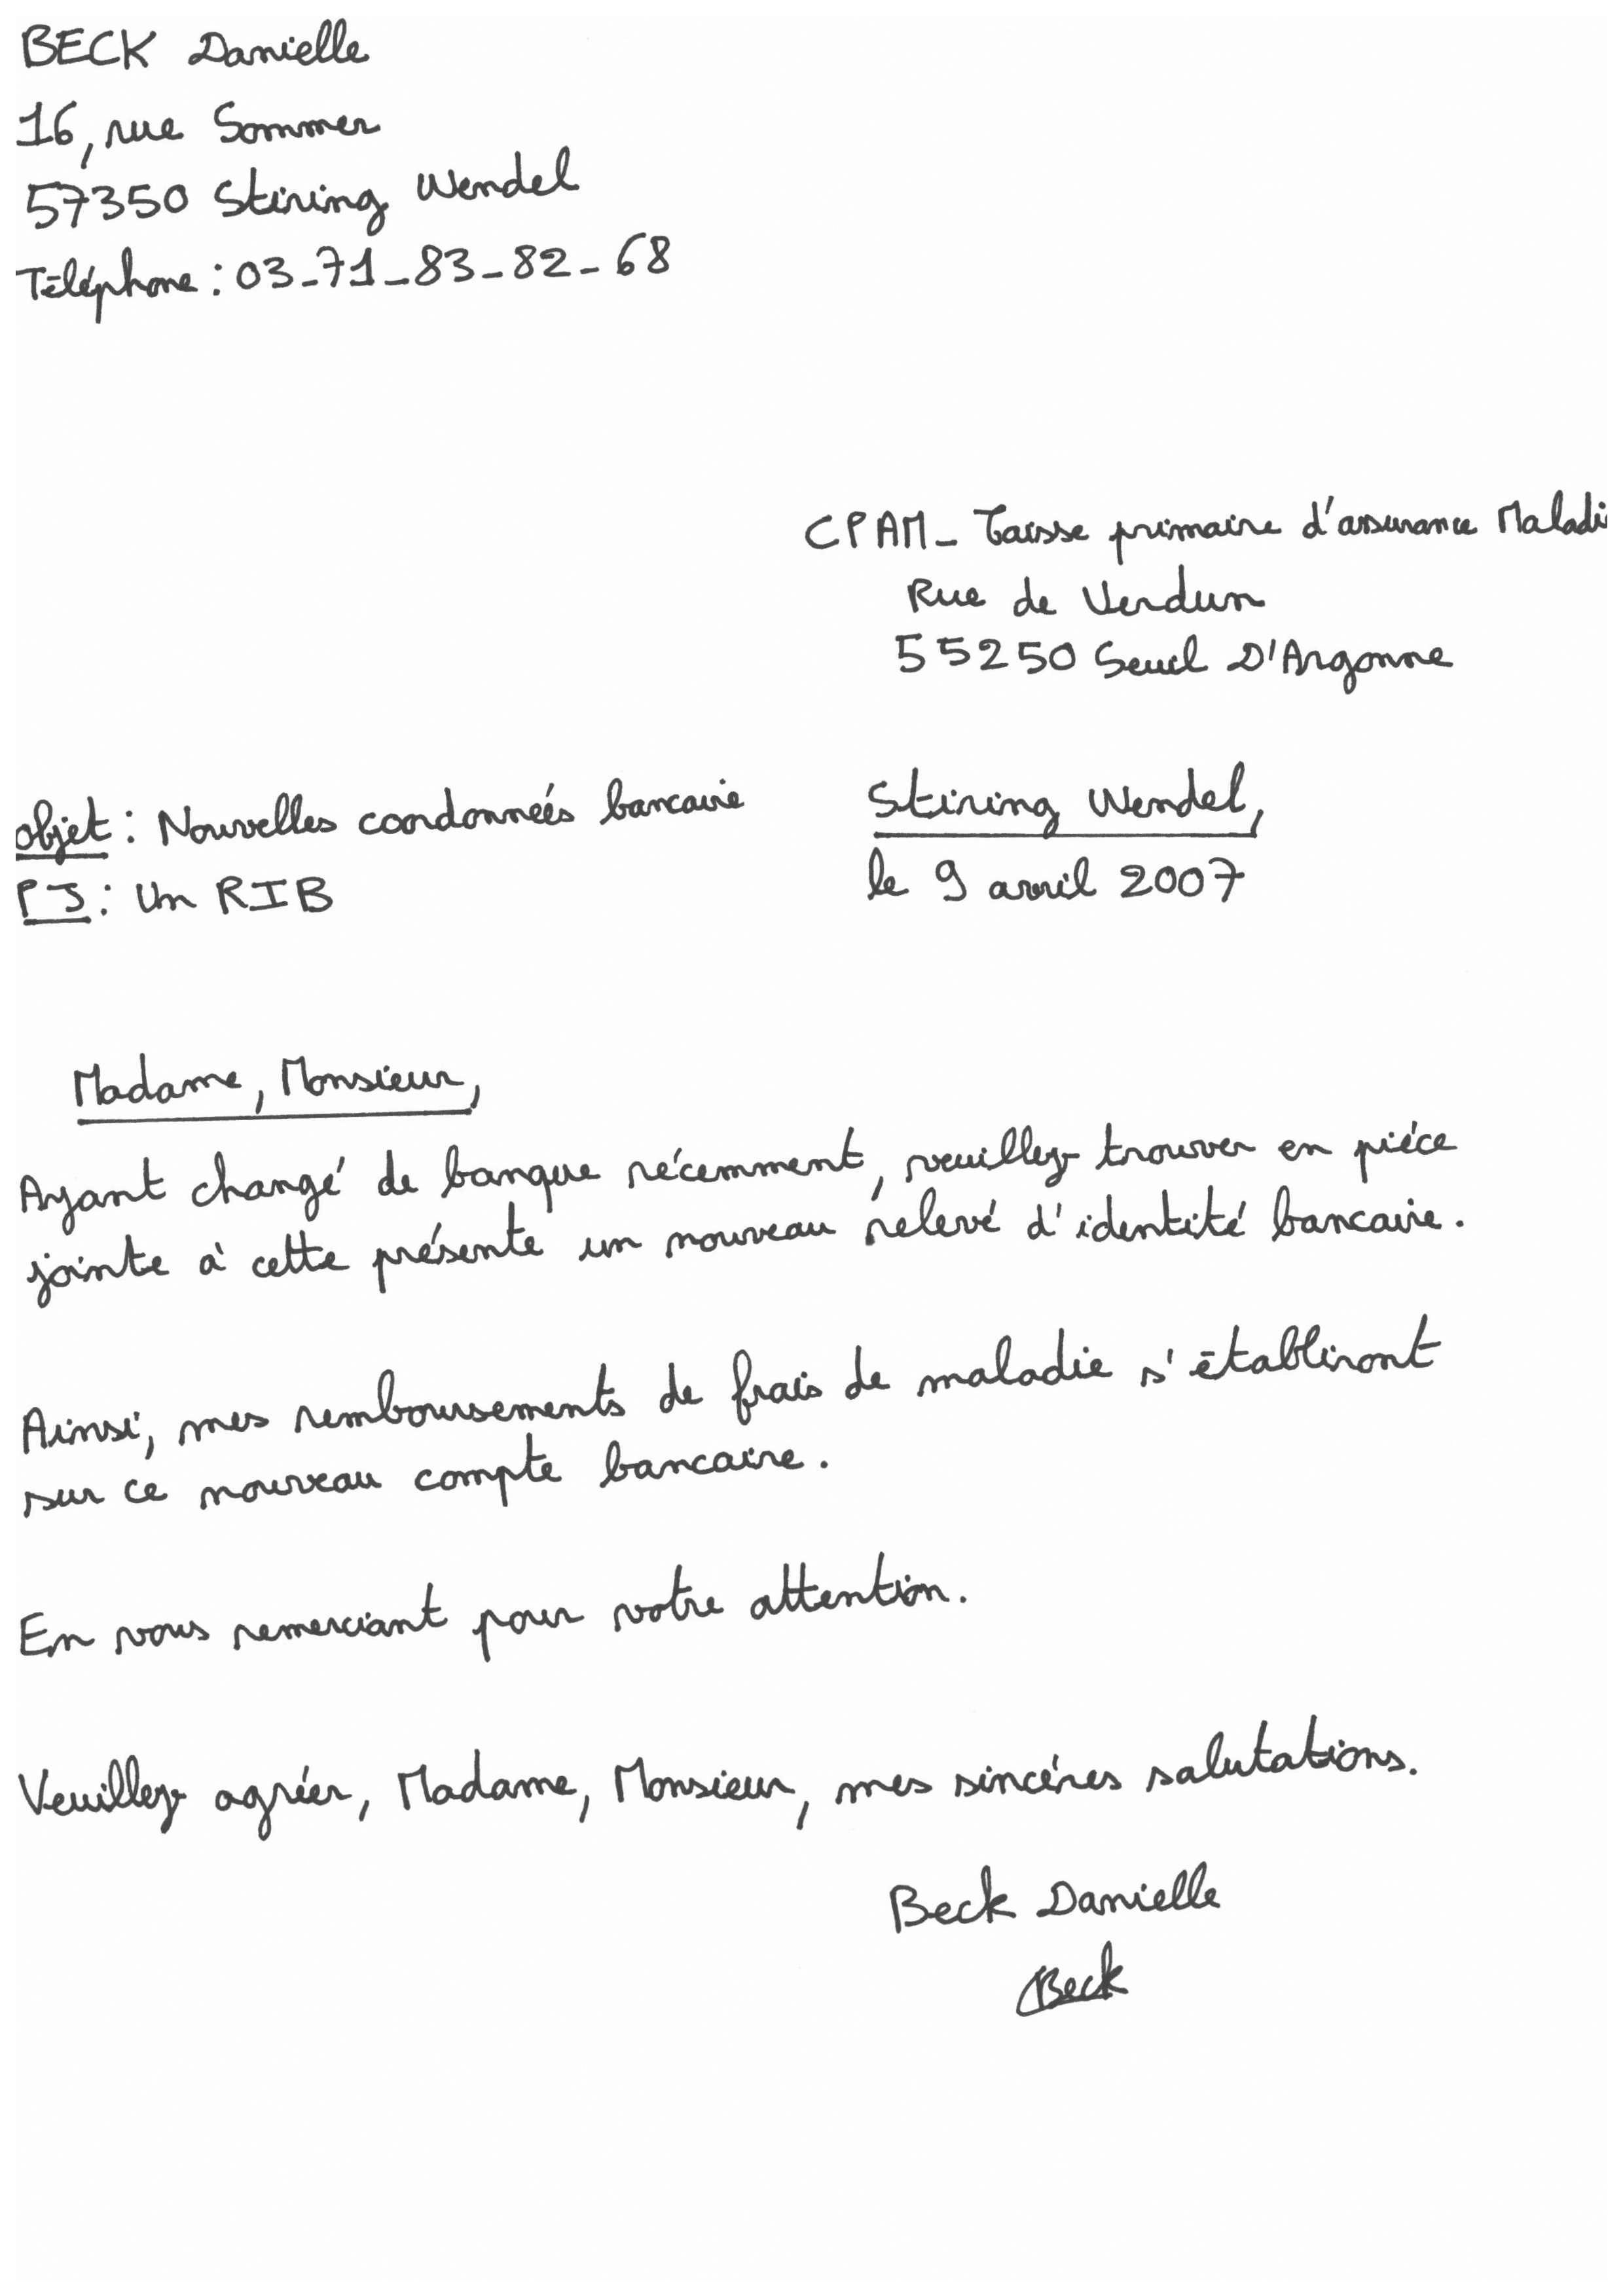 BECK Danielle
16, rue Sommer
57350 Stiring Wendel
Téléphone : 03-71-83-82-68
CPAM - Caisse primaire d'assurance Maladi
Rue de Verdun
55250 Seuil D'Argonne
objet : Nouvelles coordonnées bancaire
Stiring Wendel,
PJ : Un RIB
le 9 avril 2007
Madame, Monsieur,
Ayant changé de banque récemment, veuillez trouver en piéce
jointe à cette présente un nouveau relevé d'identité bancaire.
Ainsi, mes remboursements de frais de maladie s'établiront
sur ce nouveau compte bancaire.
En vous remerciant pour votre attention.
Veuillez agréer, Madame, Monsieur, mes sincéres salutations.
Beck Danielle
Beck